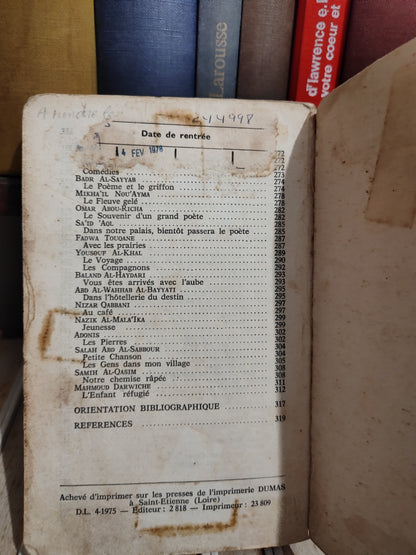 Larousse
d'lawrence e.
votre coeur et
244998
Date de rentrée
14 FEV 1978
272
272
Comédies 273
BADR AL-SAYYAB 274
Le Poème et le griffon 274
MIKHA'IL NOU'AYMA 278
Le Fleuve gelé 278
OMAR ABOU-RICHA 282
Le Souvenir d'un grand poète 282
SA'ID 'AQL 285
Dans notre palais, bientôt passera le poète 285
FADWA TOUQANE 287
Avec les prairies 287
YOUSSUF AL-KHAL 289
Le Voyage 289
Les Compagnons 292
BALAND AL-HAYDARI 293
Vous êtes arrivés avec l'aube 293
ABD AL-WAHHAB AL-BAYYATI 295
Dans l'hôtellerie du destin 295
NIZAR QABBANI 297
Au café 297
NAZIK AL-MALA'IKA 299
Jeunesse 299
ADONIS 302
Les Pierres 302
SALAH ABD AL-SABBOUR 304
Petite Chanson 304
Les Gens dans mon village 305
SAMIH AL-QASIM 308
Notre chemise râpée 308
MAHMOUD DARWICHE 311
L'Enfant réfugié 312
ORIENTATION BIBLIOGRAPHIQUE 317
REFERENCES 319
Achevé d'imprimer sur les presses de l'imprimerie DUMAS
à Saint-Etienne (Loire)
D.L. 4-1975 — Editeur : 2 818 — Imprimeur : 23 809